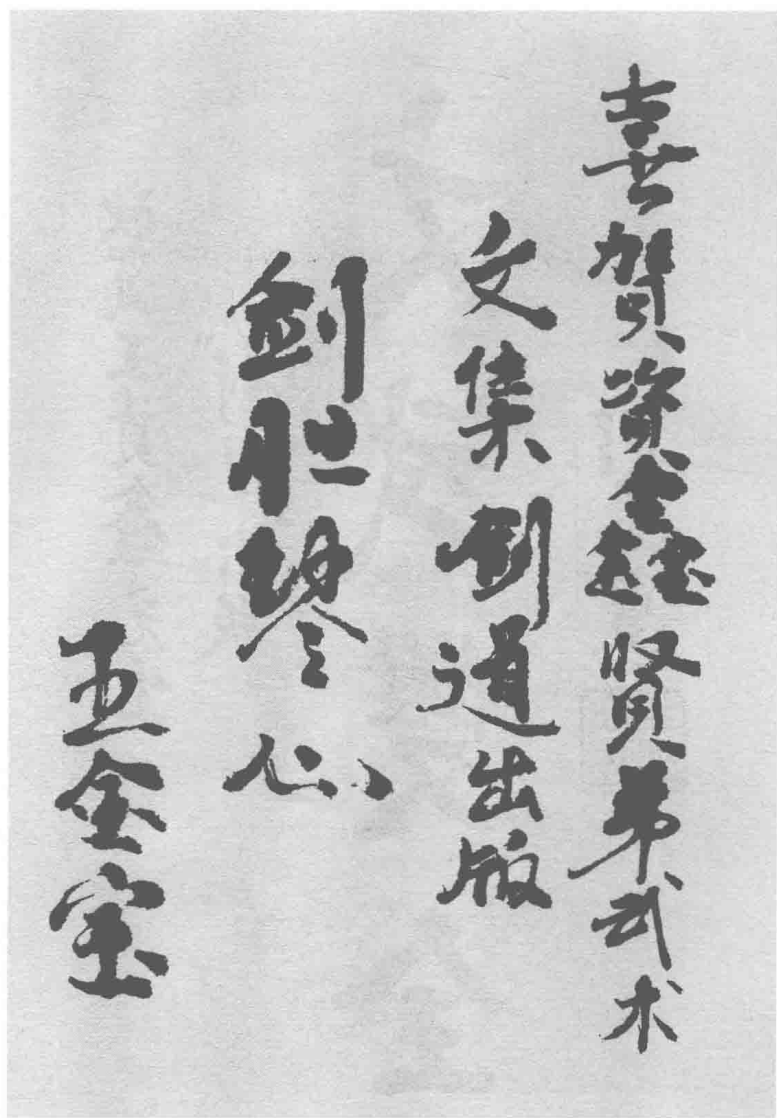 喜贺资鑫贤弟武术
文集剑道出版
剑胆琴心
王金宝